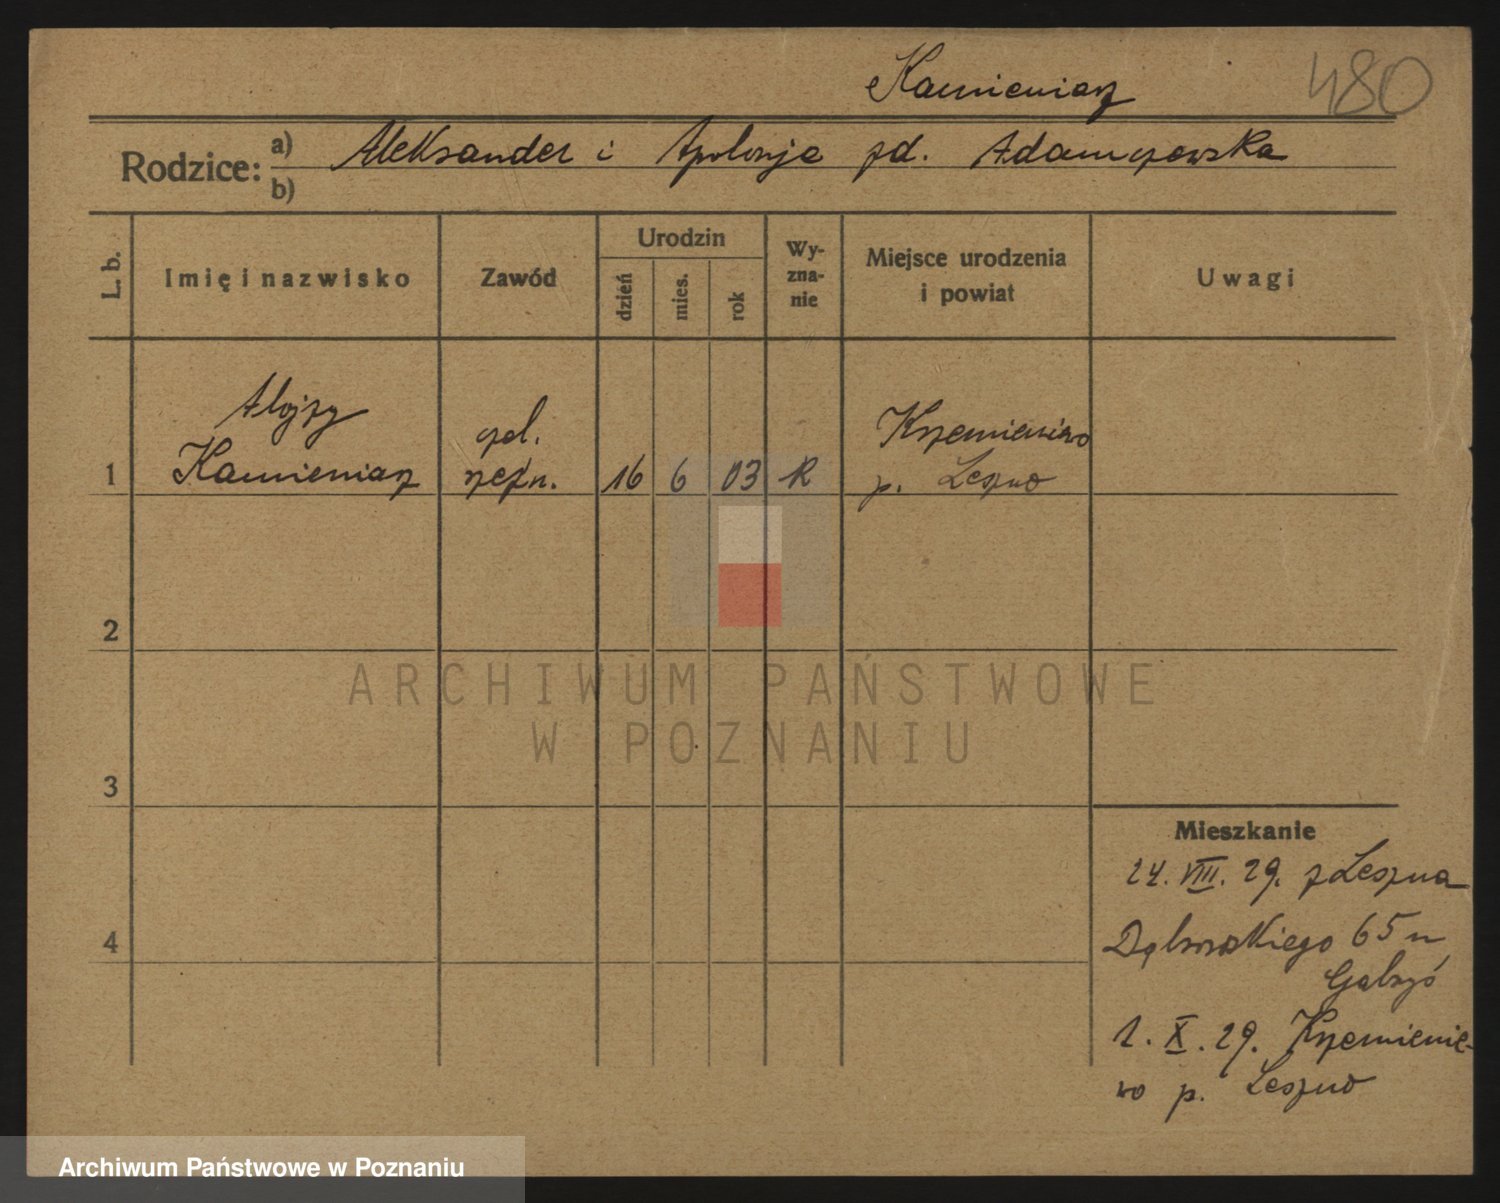 Kamieniarz
480
Rodzice:
a) Aleksander i Apolonja zd. Adamczewska
b)
L. b.
Imię i nazwisko
Zawód
Urodzin
dzień
mies.
rok
Wy-
zna-
nie
Miejsce urodzenia
i powiat
Uwagi
Alojzy
czel.
Krzemieniewo
1
Kamieniarz
rzeźn.
16
6
03
R
p. Leszno
2
3
4
Mieszkanie
24. VIII. 29. z Leszna
Dąbrowskiego 65 u
1. X. 29. Krzemienie-
wo p. Leszno
ARCHIWUM PAŃSTWOWE
W POZNANIU
Archiwum Państwowe w Poznaniu